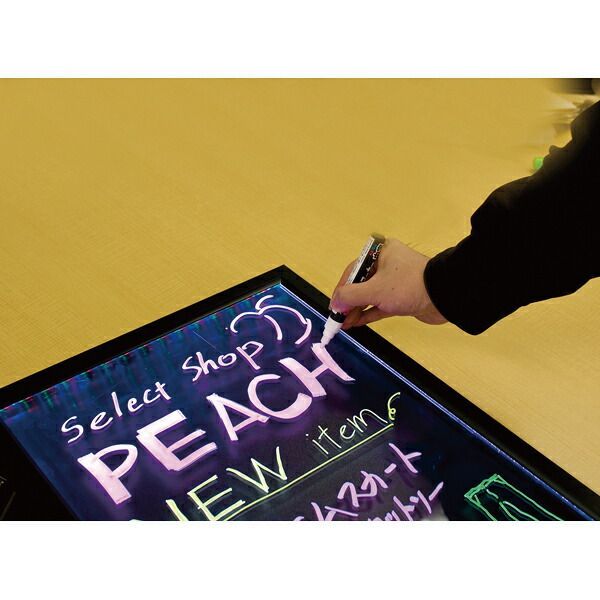 Select Shop
PEACH
NEW item
ムスカート
カットソー